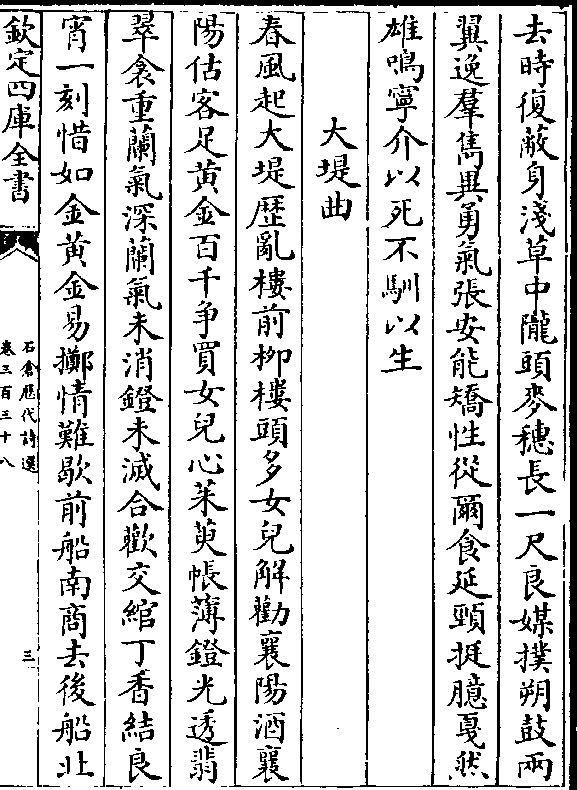 去時復蔽身淺草中隴頭麥穗長一尺良媒撲朔鼓兩
翼逸羣雋異勇氣張安能矯性從爾食延頸挺臆戛然
雄鳴寧介以死不馴以生
大堤曲
春風起大堤歷亂樓前柳樓頭多女兒解勸襄陽酒襄
陽估客足黃金百千争買女兒心茱萸帳薄鐙光透翡
翠衾重蘭氣深蘭氣未消鐙未滅合歡交綰丁香結良
宵一刻惜如金黃金易擲情難歇前船南商去後船北
欽定四庫全書
石倉歷代詩選
卷三百三十八
三